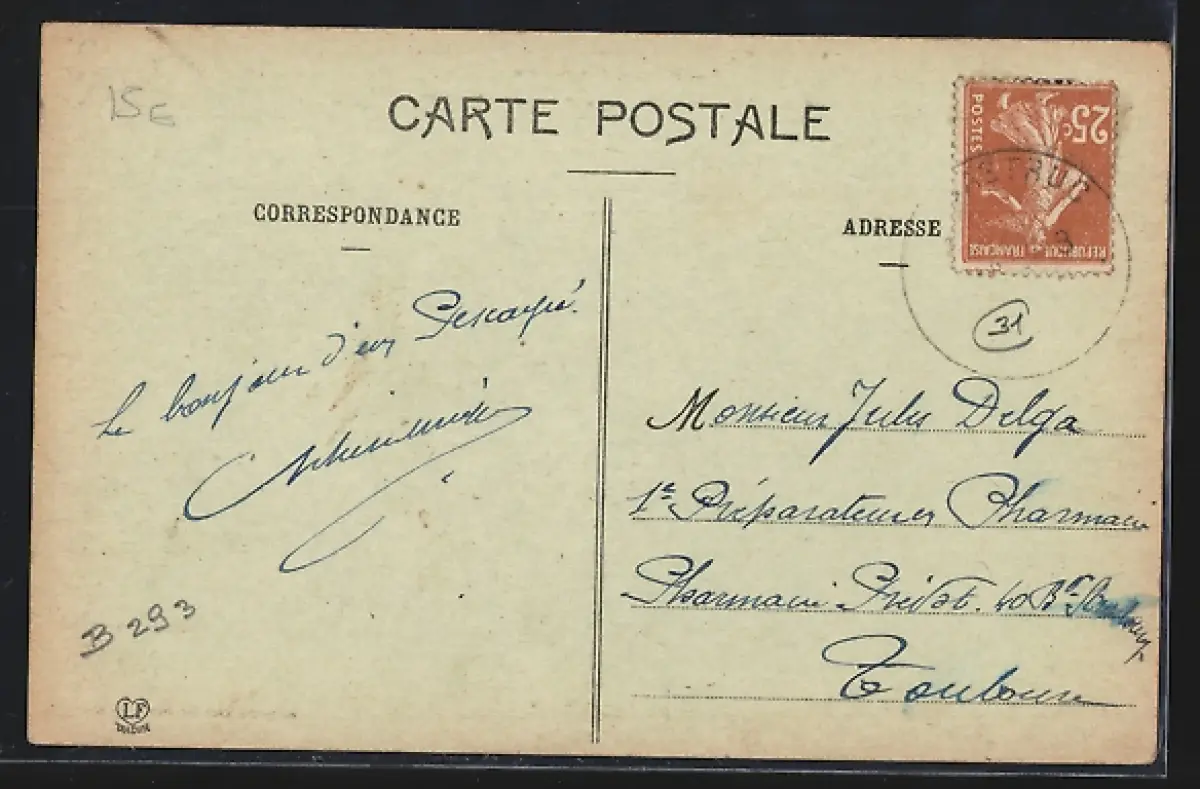 15E
CARTE POSTALE
25c
POSTES
REPUBLIQUE FRANÇAISE
CORRESPONDANCE
ADRESSE
3
31
Le bonjour d'un
Monsieur Jules Delga
1er Préparateur en Pharmacie
Pharmacie 40 Bd Strasbourg
Toulouse
B 293
LF
TOULOUSE